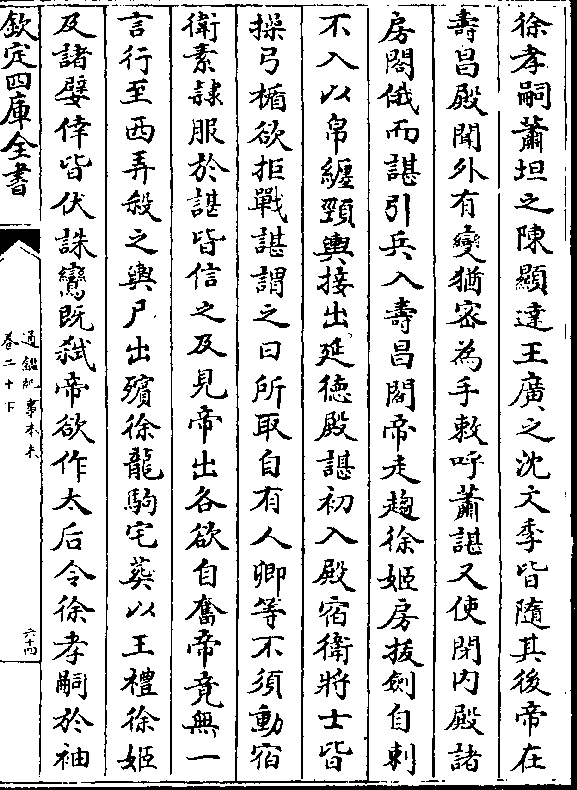 徐孝嗣蕭坦之陳顯達王廣之沈文季皆隨其後帝在
壽昌殿聞外有變猶密為手敕呼蕭諶又使閉内殿諸
房閤俄而諶引兵入壽昌閤帝走趨徐姬房拔劍自刺
不入以帛纏頸輿接出延德殿諶初入殿宿衛將士皆
操弓楯欲拒戰諶謂之曰所取自有人卿等不須動宿
衛素隷服於諶皆信之及見帝出各欲自奮帝竟無一
言行至西弄殺之輿尸出殯徐龍駒宅葬以王禮徐姬
及諸嬖倖皆伏誅鸞既弑帝欲作太后令徐孝嗣於袖
欽定四庫全書
通鑑紀事本末
卷二十下
六十四